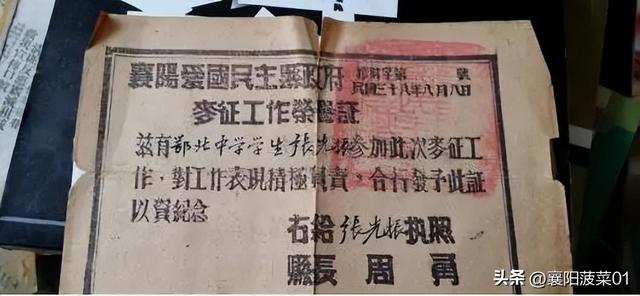 襄陽愛國民主縣政府
字第 號
民國三十八年八月八日
麥征工作榮譽証
茲有鄂北中学学生張光振參加此次麥征工
作，對工作表現積極負責，合行發予此証
以資紀念
右給張光振执照
縣長 周 勇
头条 @襄阳菠菜01